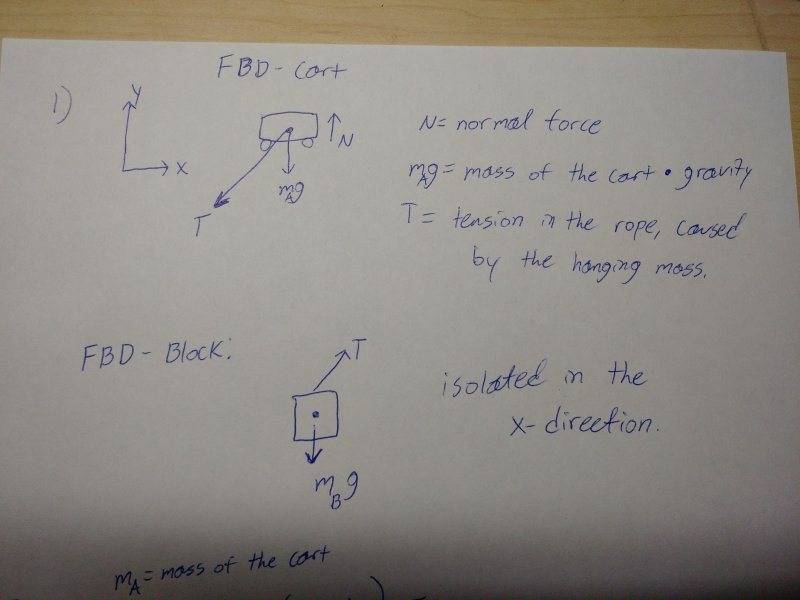 FBD - Cart
1)
y
x
N
mAg
T
N = normal force
mAg = mass of the cart • gravity
T = tension in the rope, caused
by the hanging mass.
FBD - Block:
T
mBg
isolated in the
x-direction.
mA = mass of the cart